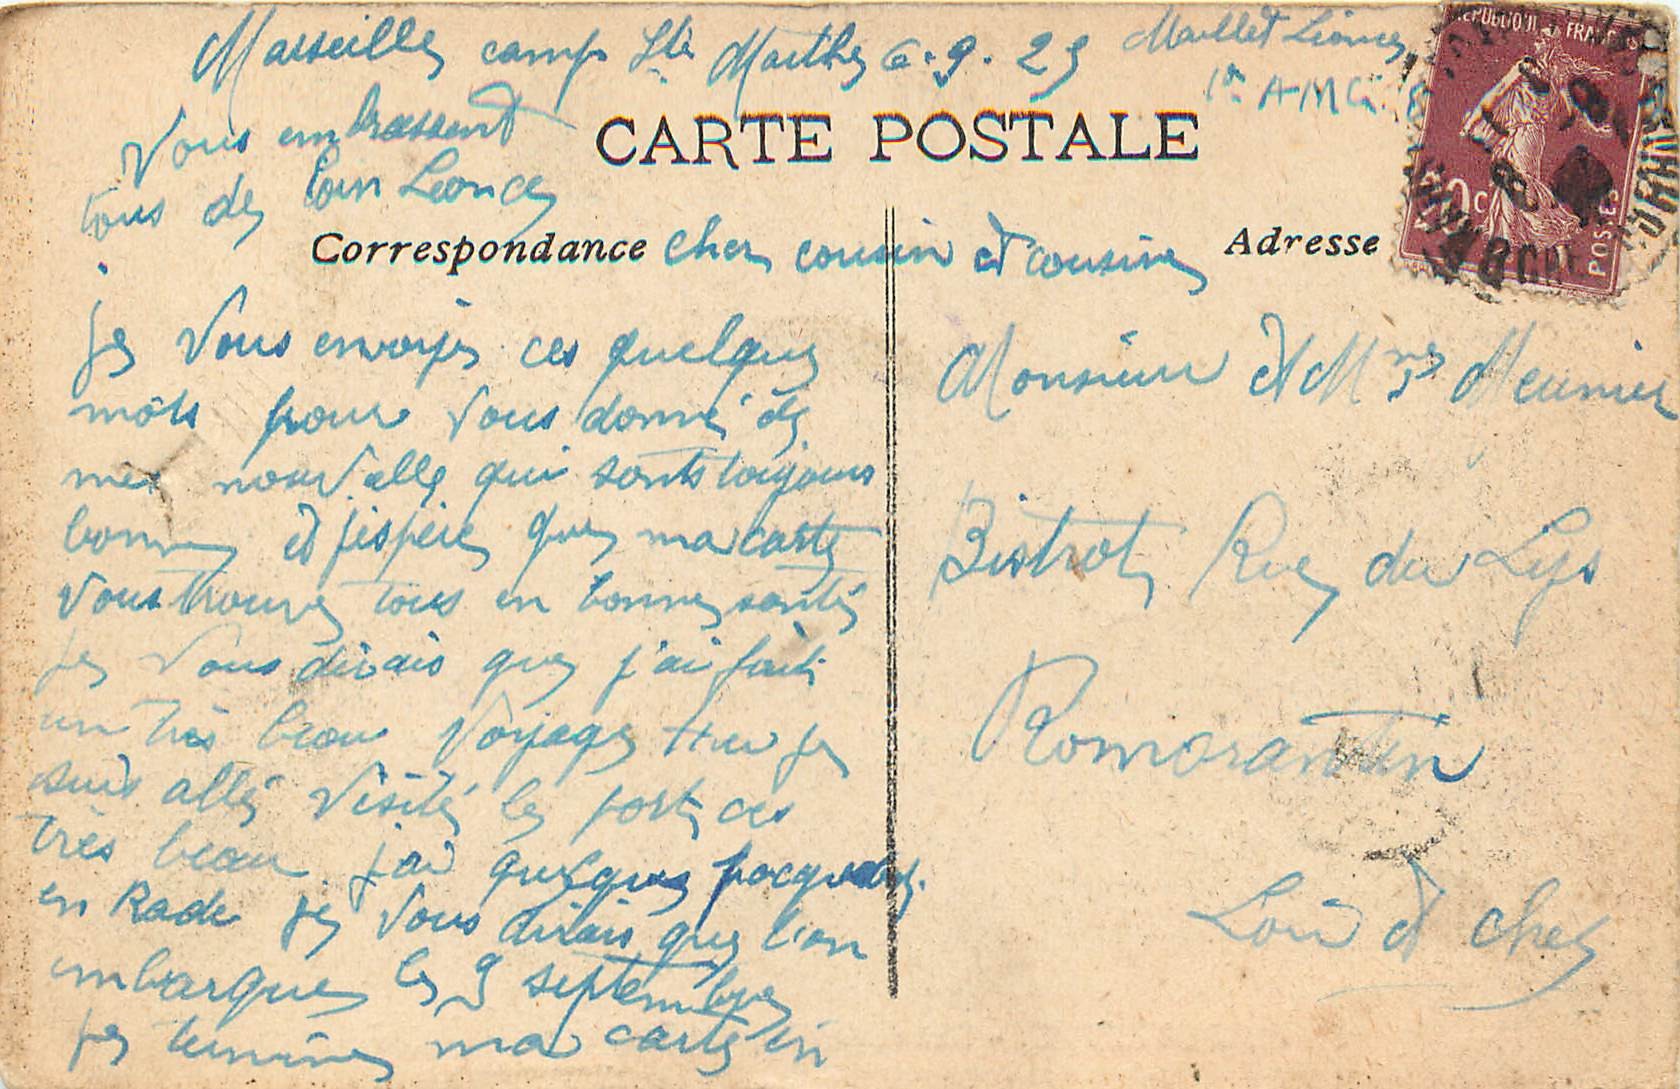 Marseille camp Ste Marthe 6.9.25 Maillet Léonce
CARTE POSTALE
Correspondance
Adresse
cher cousin et cousine
je vous envoye ces quelque
môts pour vous donné de
mes nouvelle qui sonts toujours
bonne et j'éspère que ma carte
vous trouve tous en bonne santé
je vous dirais que j'ai fait
un très beau voyage
suis allé visité le port ces
très beau j'ai quelque
en Rade je vous dirais que l'on
embarque le 9 septembre
je termine ma carte en
vous embrassent
tous de loin Léonce
Monsieur et Mme Meunier
Bistrot Rue du Lys
Romorantin
Loir et cher
20c
POSTES